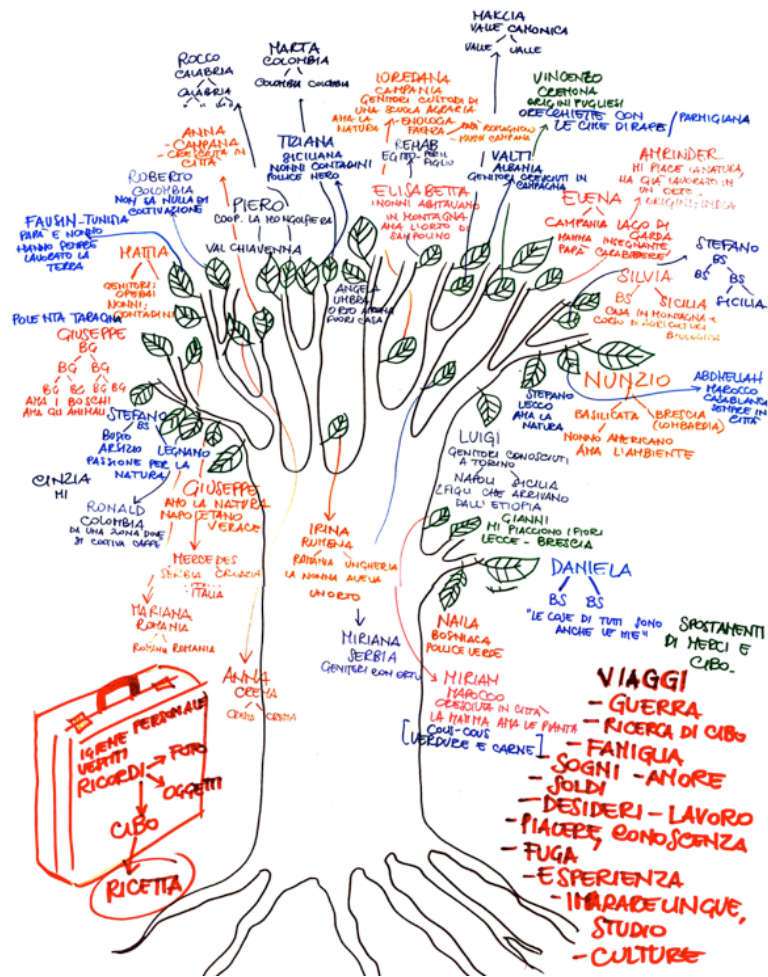 MARLIA
VALLE CAMONICA
VALLE VALLE
ROCCO
CALABRIA
CALABRIA
MARTA
COLOMBIA
COLOMBIA COLOMBIA
LOREDANA
CAMPANIA
GENITORI CUSTODI DI
UNA SCUOLA AGRARIA
AMA LA
NATURA
ENOLOGA
FAENZA
PAPÀ ROMAGNOLO
MAMMA CAMPANA
VINCENZO
CREMONA
ORIGINI PUGLIESI
ORECCHIETTE CON
LE CIME DI RAPE
PARMIGIANA
ANNA
- CAMPANA
- CRESCIUTA IN
CITTÀ
TIZIANA
SICILIANA
NONNI CONTADINI
POLLICE NERO
REHAB
EGITTO
PER IL
FIGLIO
VALTI
ALBANIA
GENITORI CRESCIUTI IN
CAMPAGNA
AMRINDER
MI PIACE LA NATURA,
HA GIÀ LAVORATO IN
UN ORTO
ORIGINI: INDIA
ROBERTO
COLOMBIA
NON SA NULLA DI
COLTIVAZIONE
PIERO
COOP. LA MONGOLFIERA
VAL CHIAVENNA
ELISABETTA
I NONNI ABITAVANO
IN MONTAGNA
AMA L'ORTO DI
SANPOLINO
ELENA
CAMPANIA LAGO DI
GARDA
MAMMA INSEGNANTE
PAPÀ CARABINIERE
FAUSIN-TUNISIA
PAPÀ E NONNO
HANNO SEMPRE
LAVORATO LA
TERRA
MATTIA
GENITORI:
OPERAI
NONNI:
CONTADINI
STEFANO
BS
BS BS
SICILIA
ANGELA
UMBRA
ORTO
FUORI CASA
SILVIA
BS SICILIA
CASA IN MONTAGNA E
CORSO DI AGRICOLTURA
BIOLOGICA
POLENTA TARAGNA
GIUSEPPE
BG
BG BG
BG BG BG BG
AMA I BOSCHI
AMA GLI ANIMALI
STEFANO
LECCO
AMA LA
NATURA
NUNZIO
BASILICATA BRESCIA
(LOMBARDIA)
NONNO AMERICANO
AMA L'AMBIENTE
ABDHELLAH
MAROCCO
CASABLANCA
SEMPRE IN
CITTÀ
STEFANO
BS
BUSTO
ARSIZIO LEGNANO
PASSIONE PER LA
NATURA
CINZIA
MI
LUIGI
GENITORI CONOSCIUTI
A TORINO
NAPOLI SICILIA
2 FIGLI CHE ARRIVANO
DALL'ETIOPIA
RONALD
COLOMBIA
DA UNA ZONA DOVE
SI COLTIVA CAFFÈ
GIUSEPPE
AMO LA NATURA
NAPOLETANO
VERACE
GIANNI
MI PIACCIONO I FIORI
LECCE - BRESCIA
IRINA
RUMENA
ROMANIA UNGHERIA
LA NONNA AVEVA
UN ORTO
MERCEDES
SERBIA CROAZIA
ITALIA
DANIELA
BS BS
"LE COSE DI TUTTI SONO
ANCHE LE MIE"
MARIANA
ROMANIA
ROMANIA ROMANIA
MIRIANA
SERBIA
GENITORI CON ORTO
NAILA
BOSNIACA
POLLICE VERDE
SPOSTAMENTI
DI MERCI E
CIBO-
ANNA
CREMA
CREMA CREMA
MIRIAM
MAROCCO
CRESCIUTA IN CITTÀ
LA MAMMA AMA LE PIANTE
COUS-COUS
[VERDURE E CARNE]
IGIENE PERSONALE
VESTITI
RICORDI
FOTO
OGGETTI
CIBO
RICETTA
VIAGGI
- GUERRA
- RICERCA DI CIBO
- FAMIGLIA
- SOGNI - AMORE
- SOLDI
- DESIDERI - LAVORO
- PIACERE, CONOSCENZA
- FUGA
- ESPERIENZA
- IMPARARE LINGUE,
STUDIO
- CULTURE